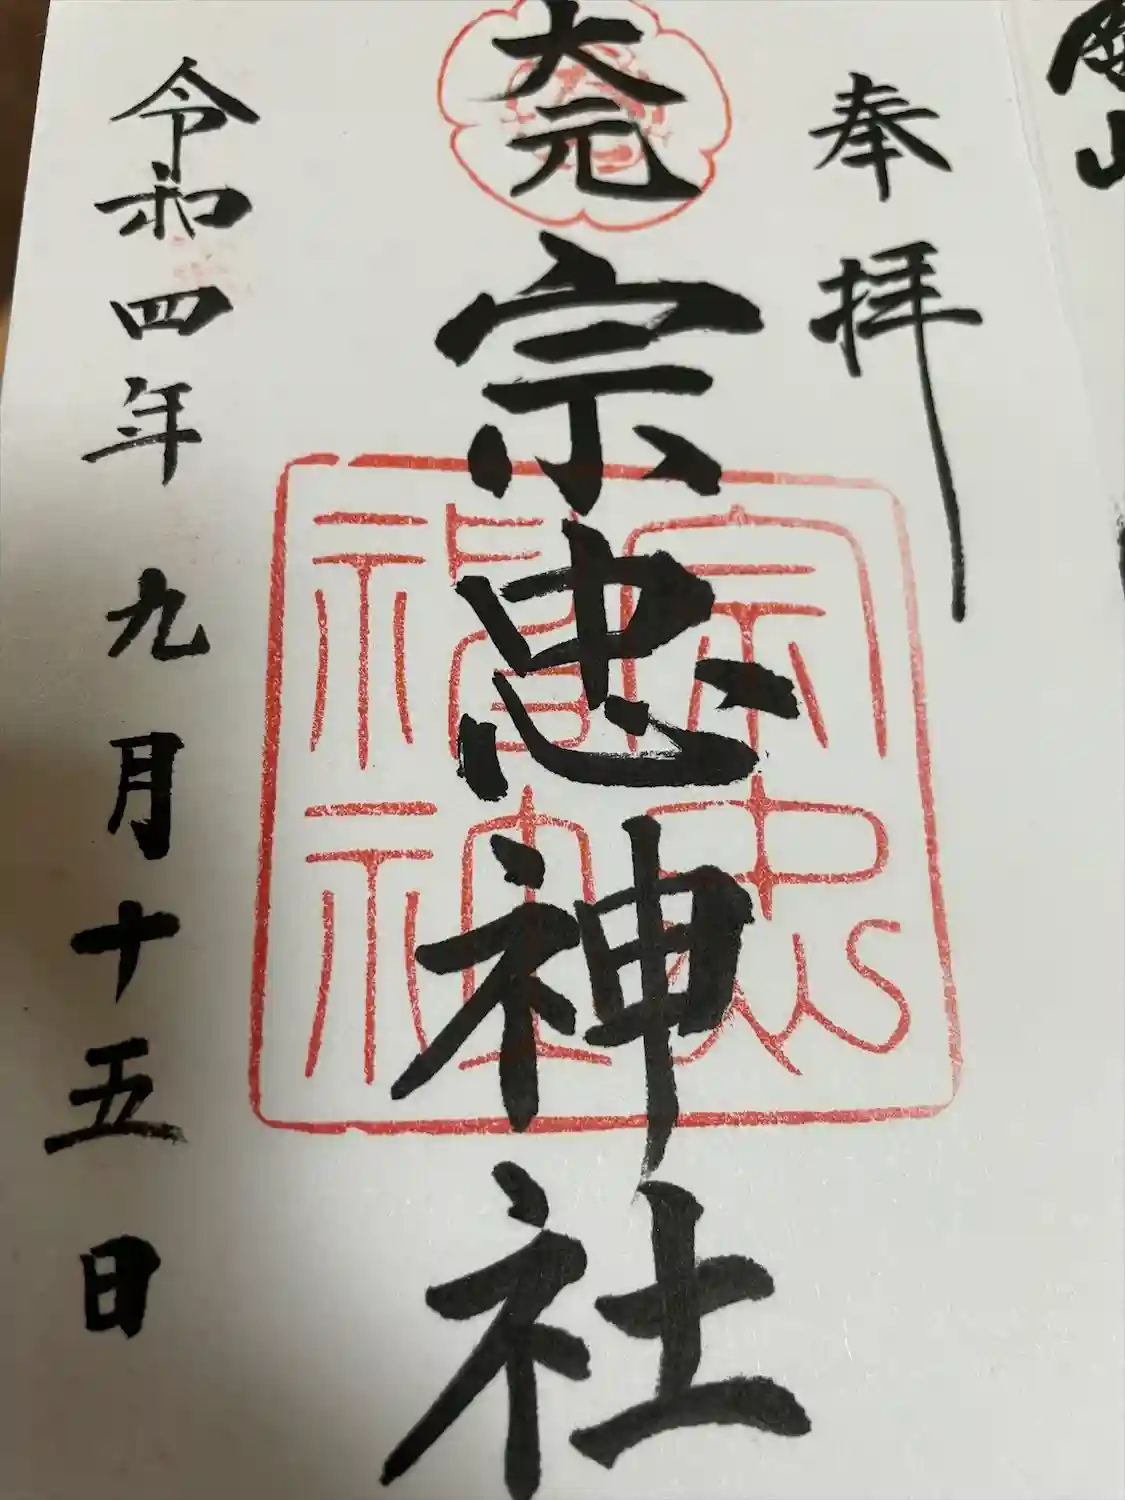 奉拝
大元
宗忠神社
令和四年九月十五日
宗忠
福神